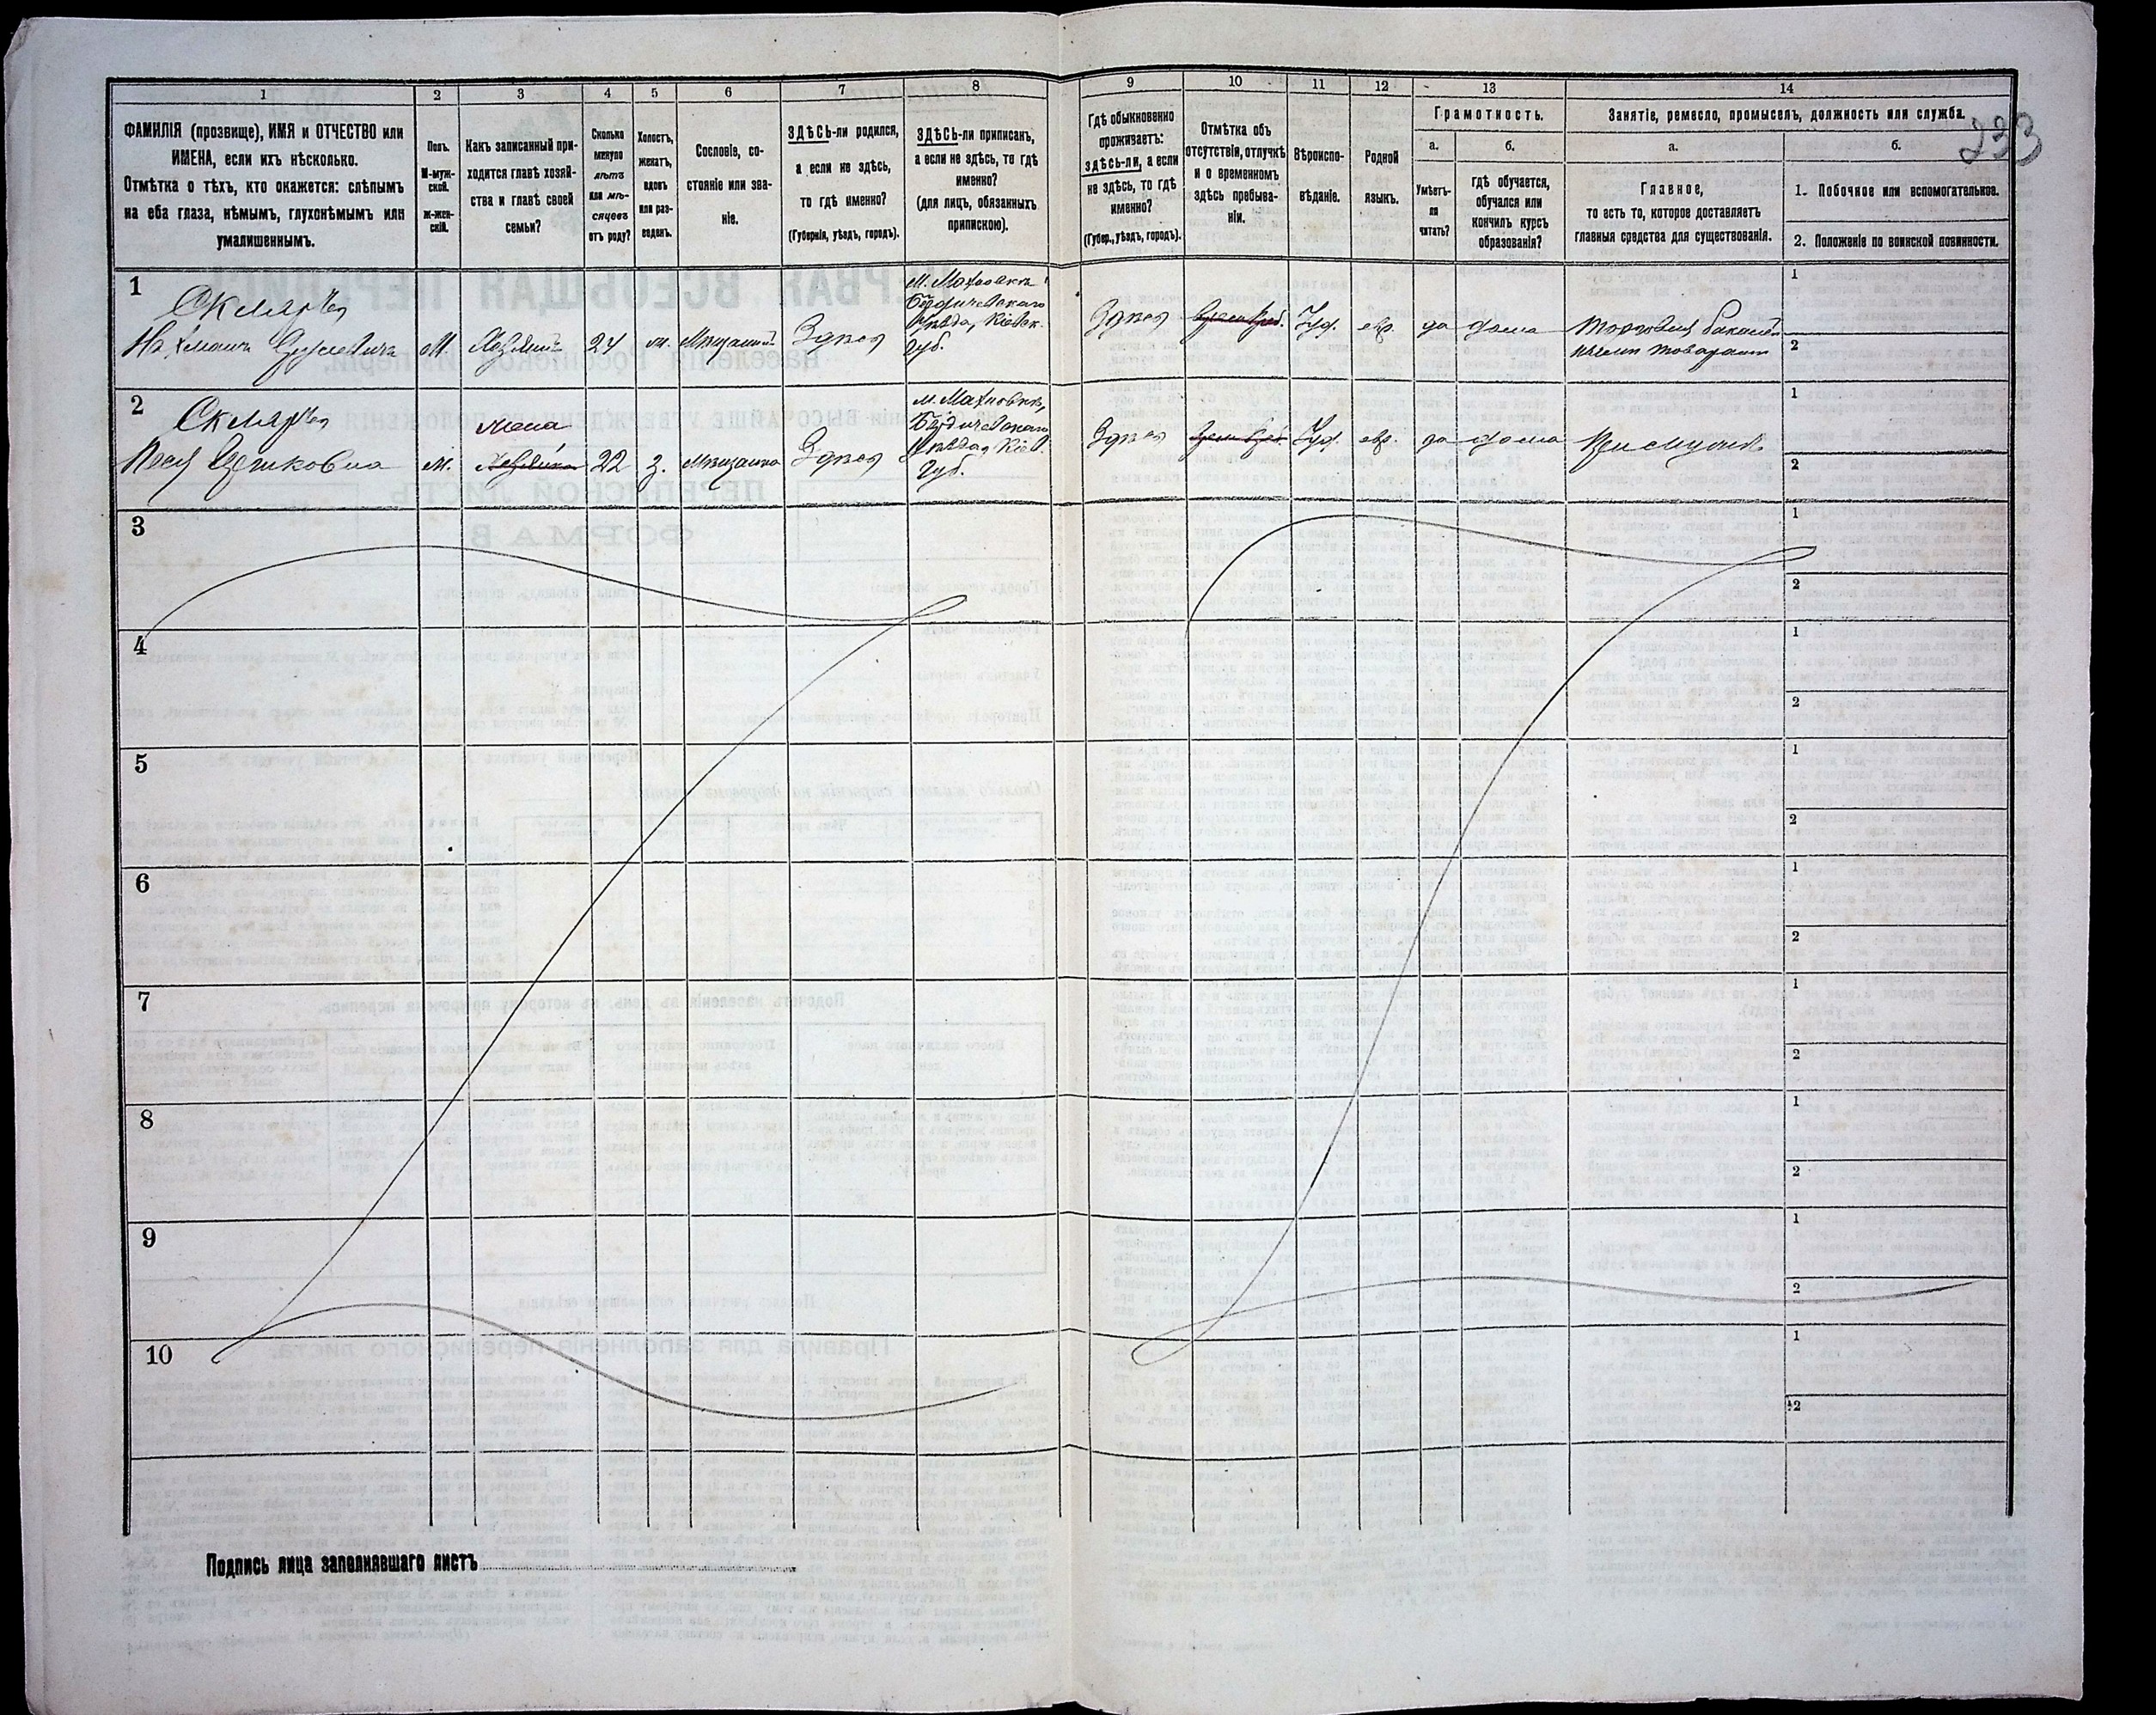 1 2 3 4 5 6 7 8 9 10 11 12 13 14
ФАМИЛІЯ (прозвище), ИМЯ и ОТЧЕСТВО или
ИМЕНА, если ихъ нѣсколько.
Отмѣтка о тѣхъ, кто окажется: слѣпымъ
на оба глаза, нѣмымъ, глухонѣмымъ или
умалишеннымъ.
Полъ.
М-муж-
ской.
ж-жен-
скій.
Какъ записанный при-
ходится главѣ хозяй-
ства и главѣ своей
семьи?
Сколько
минуло
лѣтъ
или мѣ-
сяцевъ
отъ роду?
Холостъ,
женатъ,
вдовъ
или раз-
веденъ.
Сословіе, со-
стояніе или зва-
ніе.
ЗДѢСЬ-ли родился,
а если не здѣсь,
то гдѣ именно?
(Губернія, уѣздъ, городъ).
ЗДѢСЬ-ли приписанъ,
а если не здѣсь, то гдѣ
именно?
(для лицъ, обязанныхъ
припискою).
Гдѣ обыкновенно
проживаетъ:
здѣсь-ли, а если
не здѣсь, то гдѣ
именно?
(Губер., уѣздъ, городъ).
Отмѣтка объ
отсутствіи, отлучкѣ
и о временномъ
здѣсь пребыва-
ніи.
Вѣроиспо-
вѣданіе.
Родной
языкъ.
Грамотность.
а.
Умѣетъ-
ли
читать?
б.
гдѣ обучается,
обучался или
кончилъ курсъ
образованія?
Занятіе, ремесло, промыселъ, должность или служба.
233
а.
Главное,
то есть то, которое доставляетъ
главныя средства для существованія.
б.
1. Побочное или вспомогательное.
2. Положеніе по воинской повинности.
1
Скляръ
М. хозяинъ 24 ж. мѣщанинъ Здѣсь
м. Махновкѣ
Бердичевскаго
Уѣзда, Кіевск.
Губ.
Здѣсь Іуд. евр. да дома
Торговля бакалей-
ными товарами
1
2
2
Скляръ
жена
22 з. мѣщанка Здѣсь
м. Махновкѣ,
Бердичевскаго
Уѣзда, Кіев.
Губ.
Здѣсь Іуд. евр. да дома При мужѣ
1
2
3
1
2
4
1
2
5
1
2
6
1
2
7
1
2
8
1
2
9
1
2
10
1
2
Подпись лица заполнявшаго листъ